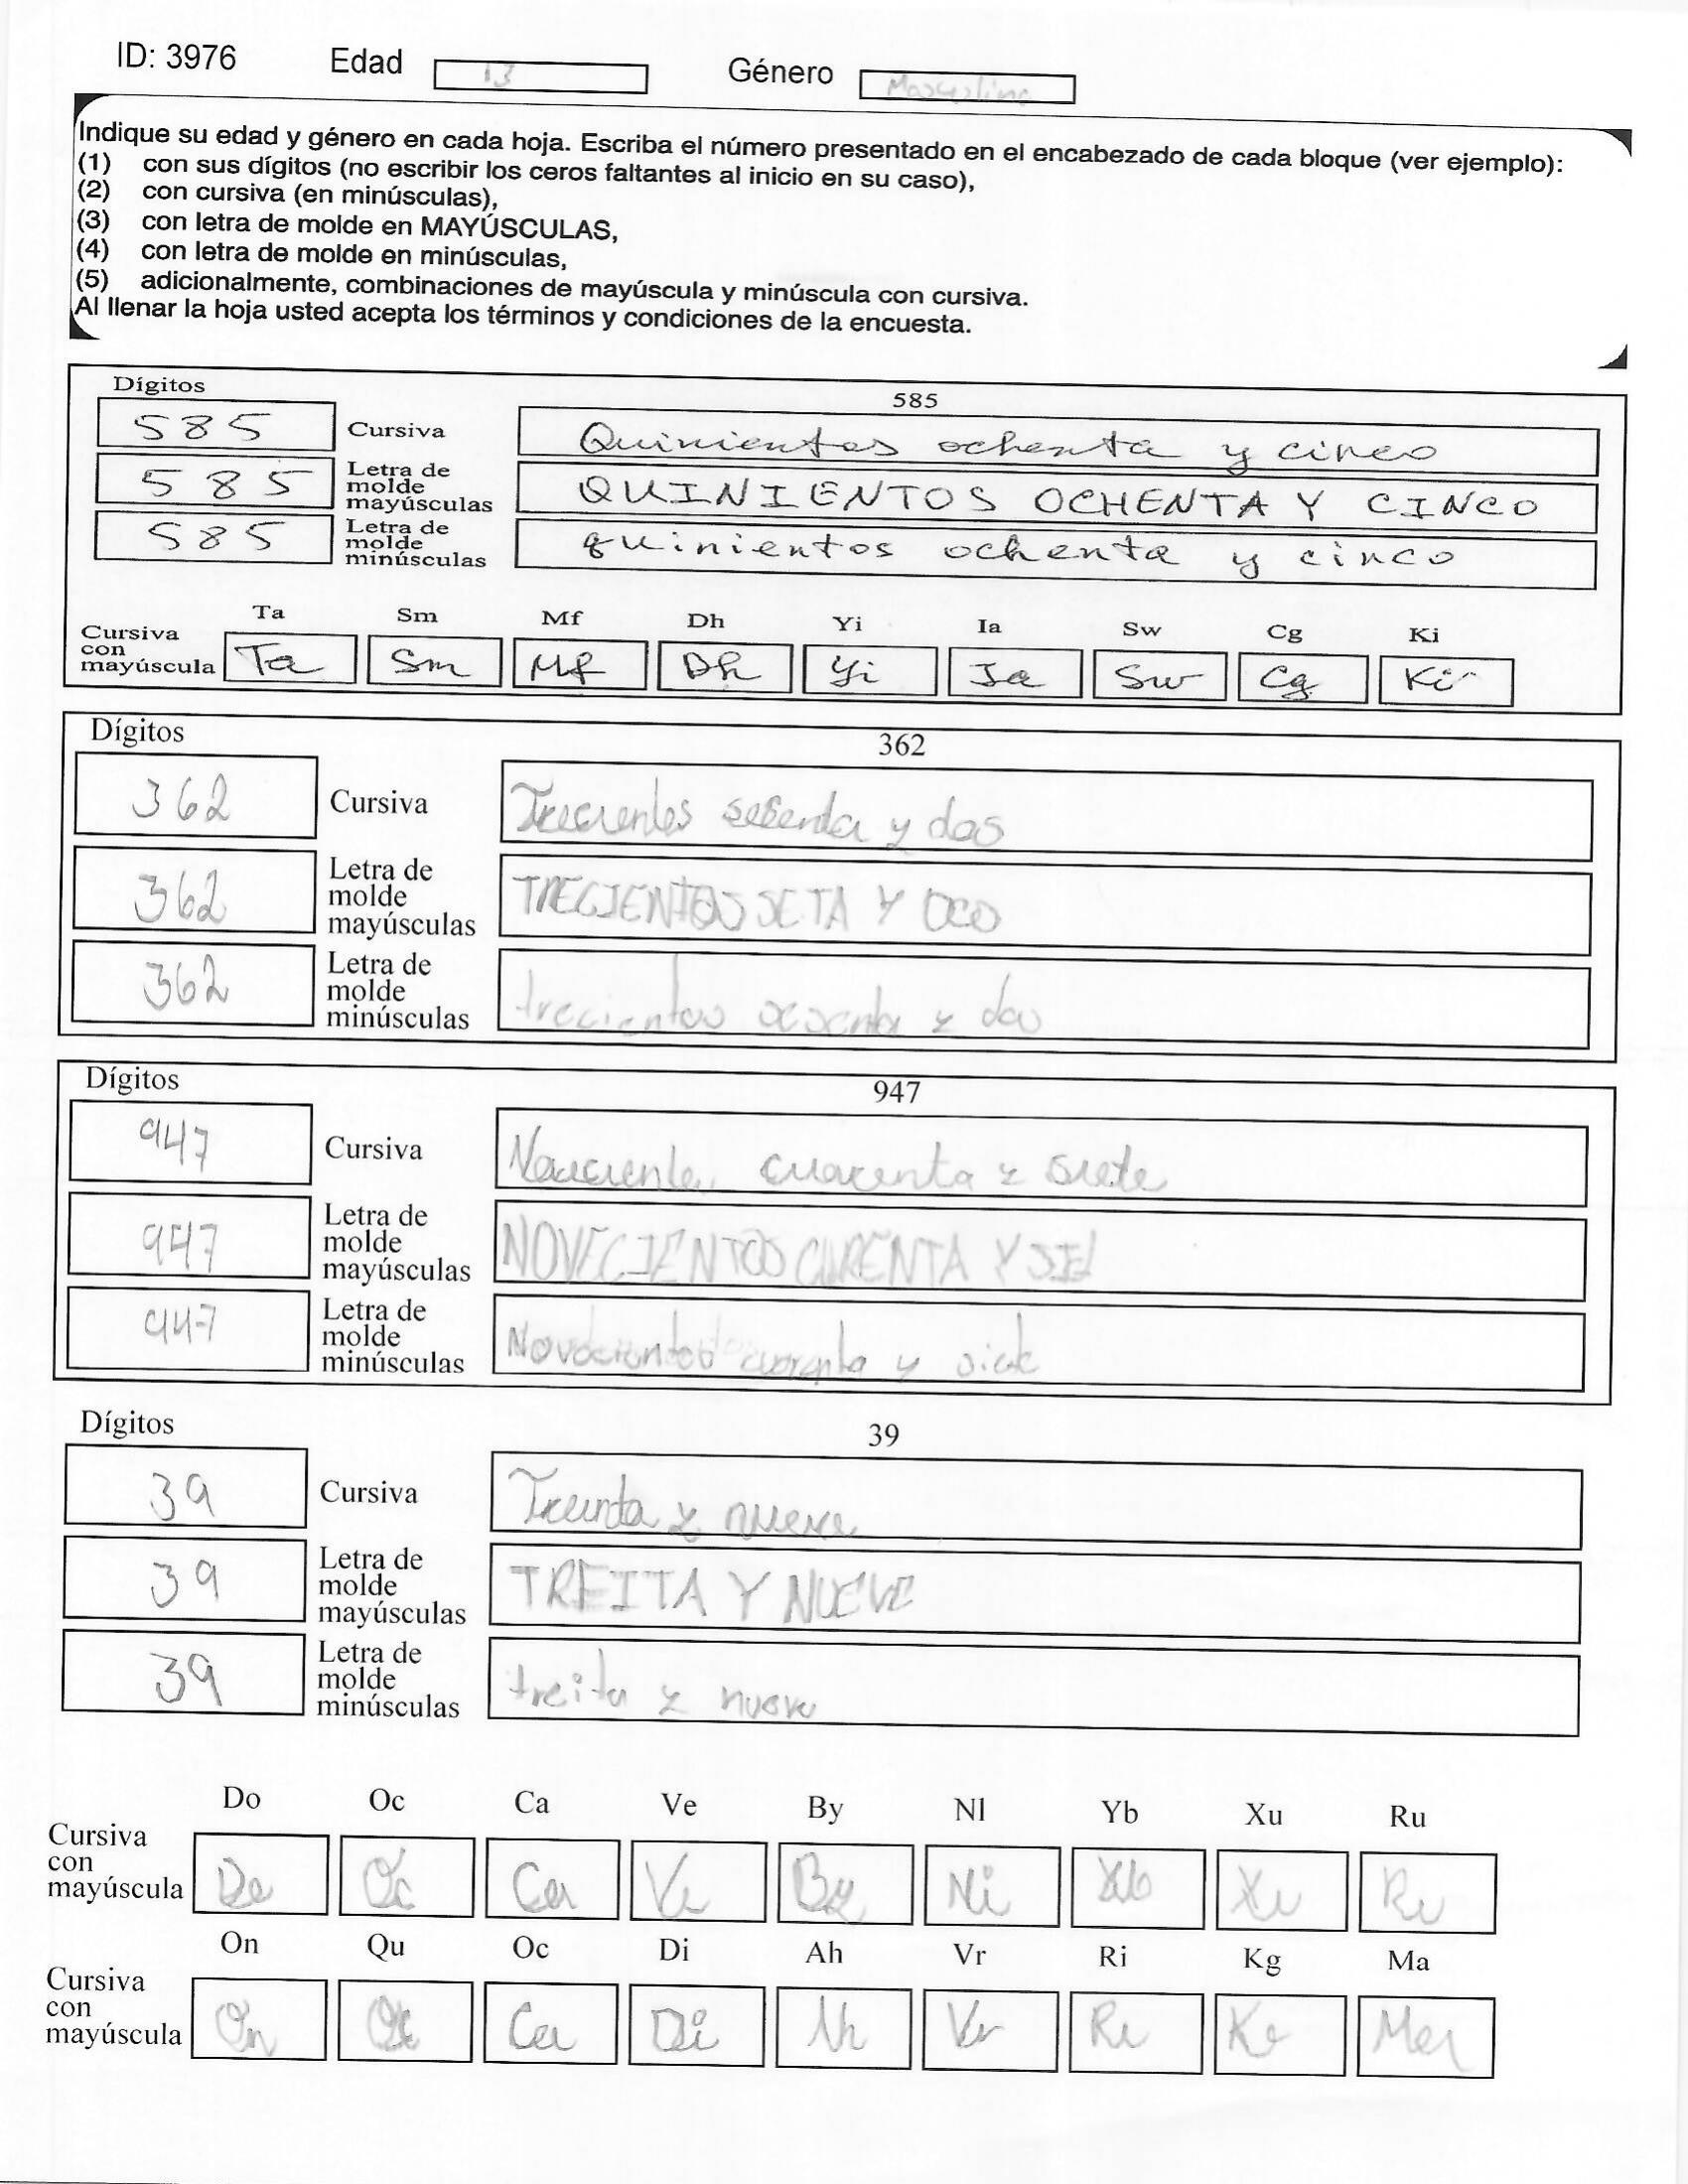 ID: 3976 Edad 13 Género Masculino
Indique su edad y género en cada hoja. Escriba el número presentado en el encabezado de cada bloque (ver ejemplo):
(1) con sus dígitos (no escribir los ceros faltantes al inicio en su caso),
(2) con cursiva (en minúsculas),
(3) con letra de molde en MAYÚSCULAS,
(4) con letra de molde en minúsculas,
(5) adicionalmente, combinaciones de mayúscula y minúscula con cursiva.
Al llenar la hoja usted acepta los términos y condiciones de la encuesta.
Dígitos 585
585 Cursiva Quinientos ochenta y cinco
585 Letra de molde mayúsculas QUINIENTOS OCHENTA Y CINCO
585 Letra de molde minúsculas quinientos ochenta y cinco
Ta Sm Mf Dh Yi Ia Sw Cg Ki
Cursiva con mayúscula Ta Sm Mf Dh Yi Ia Sw Cg Ki
Dígitos 362
362 Cursiva Trecientos y dos
362 Letra de molde mayúsculas TRECIENTOS SETA Y
362 Letra de molde minúsculas trecientos y dos
Dígitos 947
947 Cursiva cuarenta y siete
947 Letra de molde mayúsculas NOVECIENTOS CURENTA Y
947 Letra de molde minúsculas y siete
Dígitos 39
39 Cursiva Treinta y nueve
39 Letra de molde mayúsculas TREITA Y NUEVE
39 Letra de molde minúsculas treita y nueve
Do Oc Ca Ve By Nl Yb Xu Ru
Cursiva con mayúscula Do Oc Ca Ve By Ni Xu Ru
On Qu Oc Di Ah Vr Ri Kg Ma
Cursiva con mayúscula On Ca Di Ah Vr Ri Ma